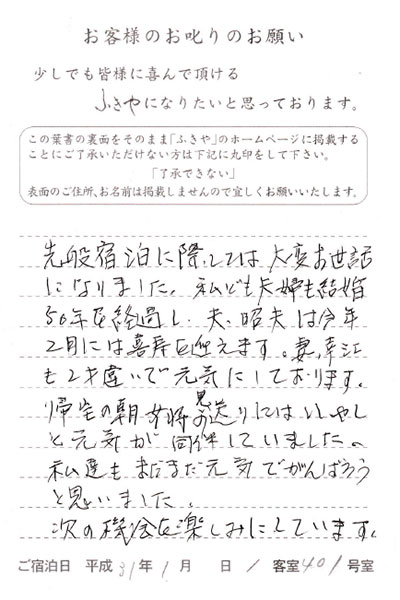 お客様のお叱りのお願い
少しでも皆様に喜んで頂ける
ふきやになりたいと思っております。
この葉書の裏面をそのまま「ふきや」のホームページに掲載する
ことにご了承いただけない方は下記に丸印をして下さい。
「了承できない」
表面のご住所、お名前は掲載しませんので宜しくお願いいたします。
先般宿泊に際しては大変お世話
になりました。私ども夫婦も結婚
50年を経過し、夫、昭夫は今年
2月には喜寿を迎えます。妻、幸江
も2才違いで元気にしております。
帰宅の朝女将のお見送りにはいやし
と元気が同伴していました。
私達もまだまだ元気でがんばろう
と思いました。
次の機会を楽しみにしています。
ご宿泊日 平成31年1月 日 / 客室401号室